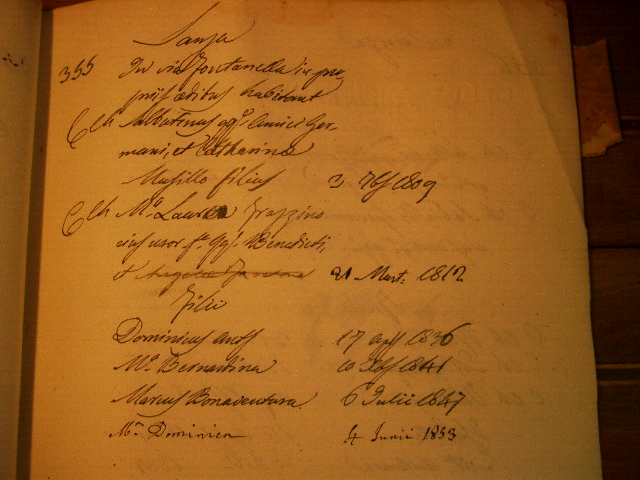 355 In via Fontanella in pro
priis œdibus habitant
CCh Albertinus qq.m Amici Ger
mani, et Catharina
Musillo filius 3 7bS 1809
CCh M.a Laura Frazzino
eius uxor f.a qq. Benedicti,
et 21 Mart: 1812
Filii
Dominicus Ant.s 17 1836
M.a Bernardina 10 Xbs 1841
Marcus Bonaventura 6 Julii 1847
M.a Dominica 4 Junii 1853